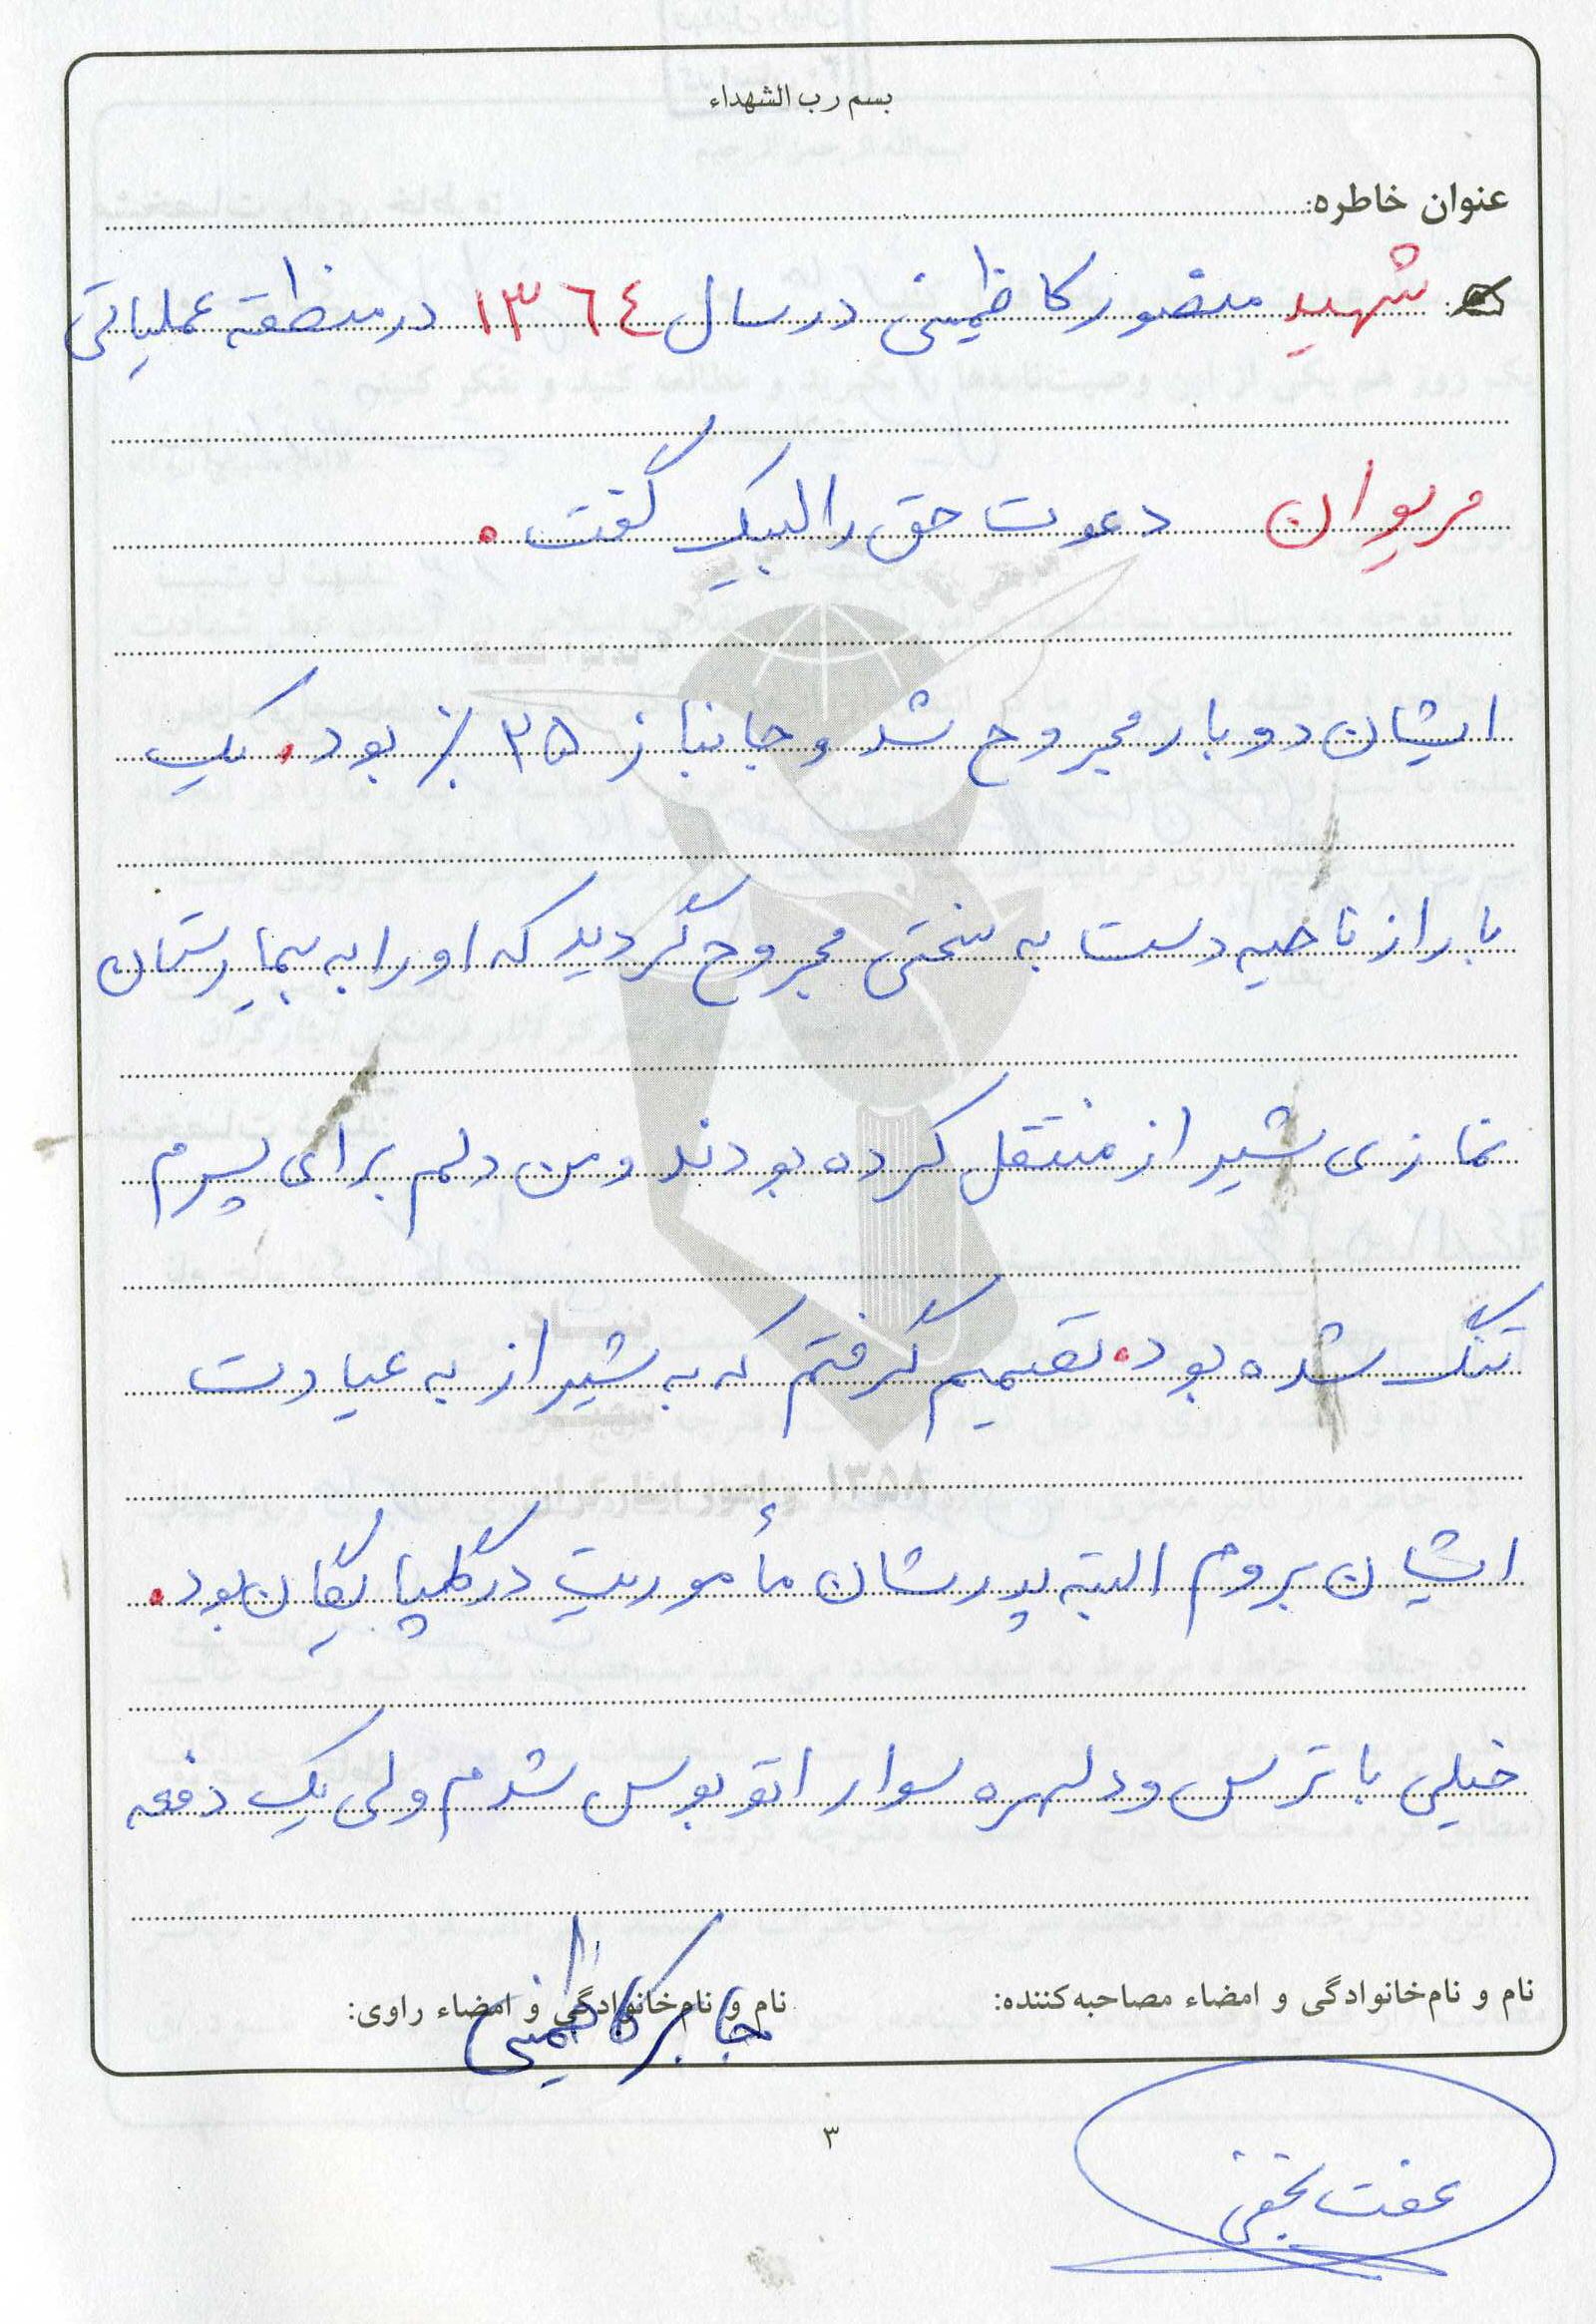 بسم رب الشهداء
عنوان خاطره:
شهید منصور کاظمینی در سال ۱۳٦٤ در منطقه عملیاتی
مریوان دعوت حق را لبیک گفت.
ایشان دو بار مجروح شد و جانباز ۲۵٪ بود. یک
بار از ناحیه دست به سختی مجروح گردید که او را به بیمارستان
نمازی شیراز منتقل کرده بودند و من دلم برای پسرم
تنگ شده بود. تصمیم گرفتم که به شیراز به عیادت
ایشان بروم البته پدرشان مأموریت در گلپایگان بود.
خیلی با ترس و دلهره سوار اتوبوس شدم ولی یک دفعه
نام و نام‌خانوادگی و امضاء مصاحبه‌کننده:
نام و نام‌خانوادگی و امضاء راوی:
جابر کاظمینی
۳
عفت نجفی